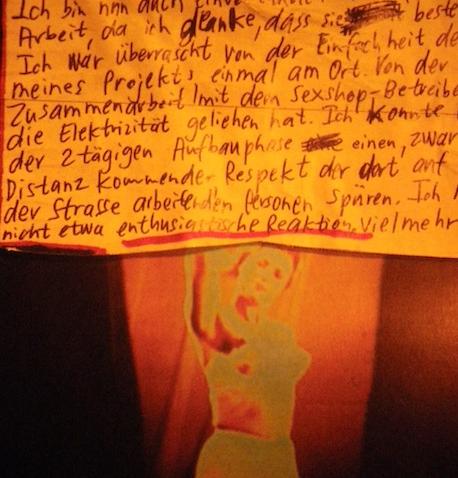 Ich bin nun auch
Arbeit, da ich denke, dass sie beste
Ich war überrascht von der Einfachheit de
meines Projekts einmal am Ort. Von der
Zusammenarbeit mit dem Sexshop-Betreibe
die Elektrizität geliehen hat. Ich konnte
der 2tägigen Aufbauphase einen, zwar
Distanz kommender Respekt der dort auf
der Strasse arbeitenden Personen spüren. Ich
nicht etwa enthusiastische Reaktion, vielmehr